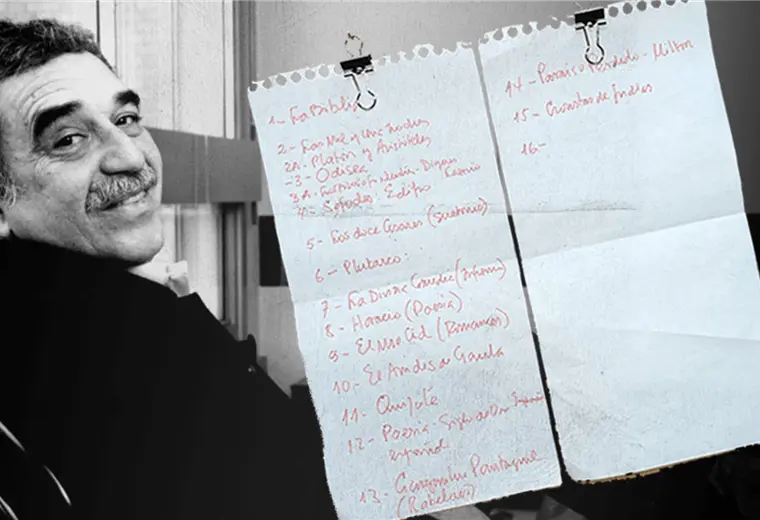 1- La Biblia
2- Las Mil y una noches
2A- Platón y Aristóteles
-3- Odisea
3A- Diógenes Laercio
4- Sófocles: Edipo
5- Los doce Césares (Suetonio)
6- Plutarco:
7- La Divina Comedia (Infierno)
8- Horacio (Poesía)
9- El Mio Cid (Romances)
10- El Amadís de Gaula
11- Quijote
12- Poesía - Siglo de Oro
español
13- Gargantua Pantagruel
(Rabelais)
14- Paraíso Perdido - Milton
15- Cronistas de Indias
16-